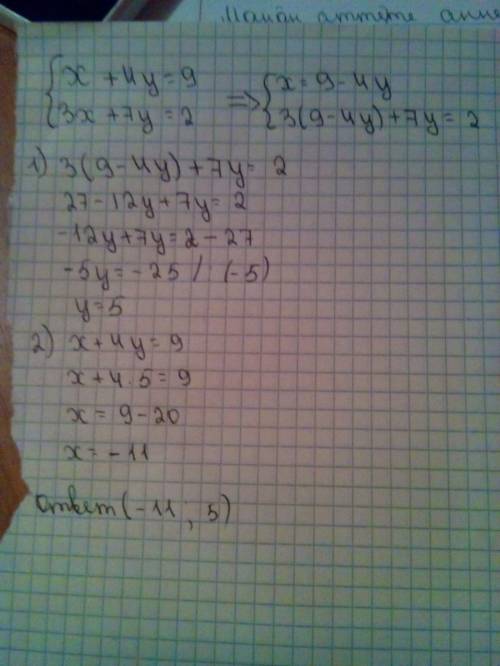 Найди
{x + 4y = 9
{3x + 7y = 2 => {x = 9 - 4y
{3(9 - 4y) + 7y = 2
1) 3(9 - 4y) + 7y = 2
27 - 12y + 7y = 2
-12y + 7y = 2 - 27
-5y = -25 / (-5)
y = 5
2) x + 4y = 9
x + 4 · 5 = 9
x = 9 - 20
x = -11
Ответ (-11 ; 5)